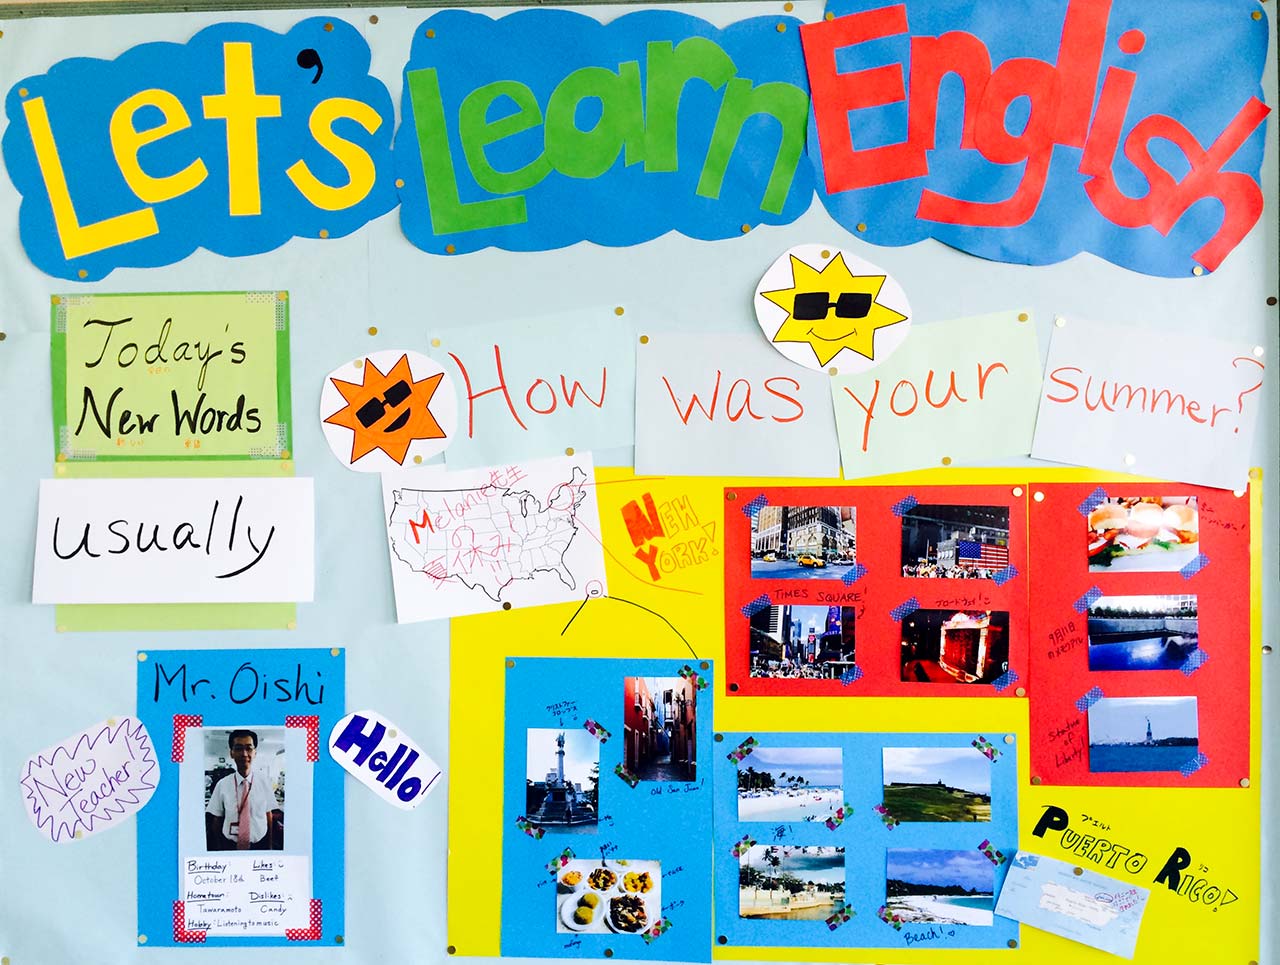 Let's Learn English
Today's
New Words
usually
How was your summer?
Melanie先生
の
夏休み!
NEW
YORK!
TIMES SQUARE!
ブロードウェイ!
9月11日
のメモリアル
Statue
of
Liberty
Mr. Oishi
New
Teacher!
Hello!
Birthday:
October 18th
Likes:
Beef
Hometown:
Tawaramoto
Dislikes:
Candy
Hobby: Listening to music
Old San Juan!
海!
Beach!
プエルト
リコ
PUERTO RICO!